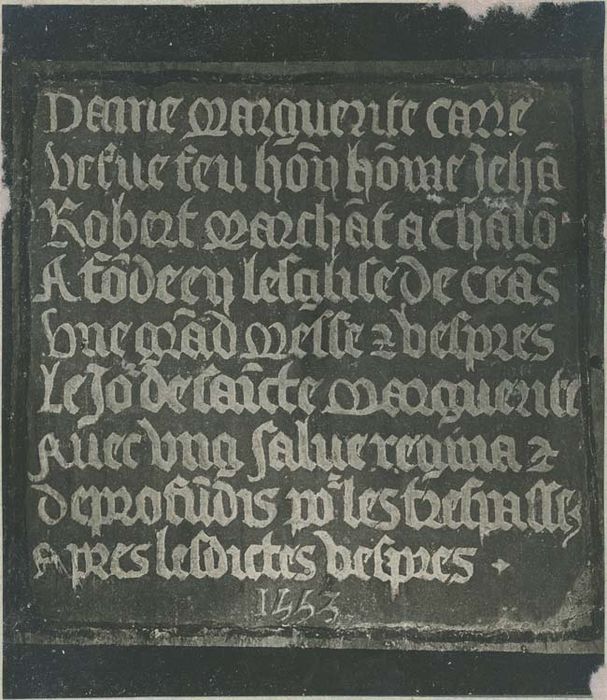 Dame Marguerite carre
vefue feu hōn hōme Jehā
Robert Marchāt a Chalō
A fōde en lesglise de ceās
vne grād Messe ⁊ vespres
Le Jor de saīcte Marguerite
Auec vng salue regina ⁊
deprofūdis por les trespassez
Apres lesdictes vespres
1553